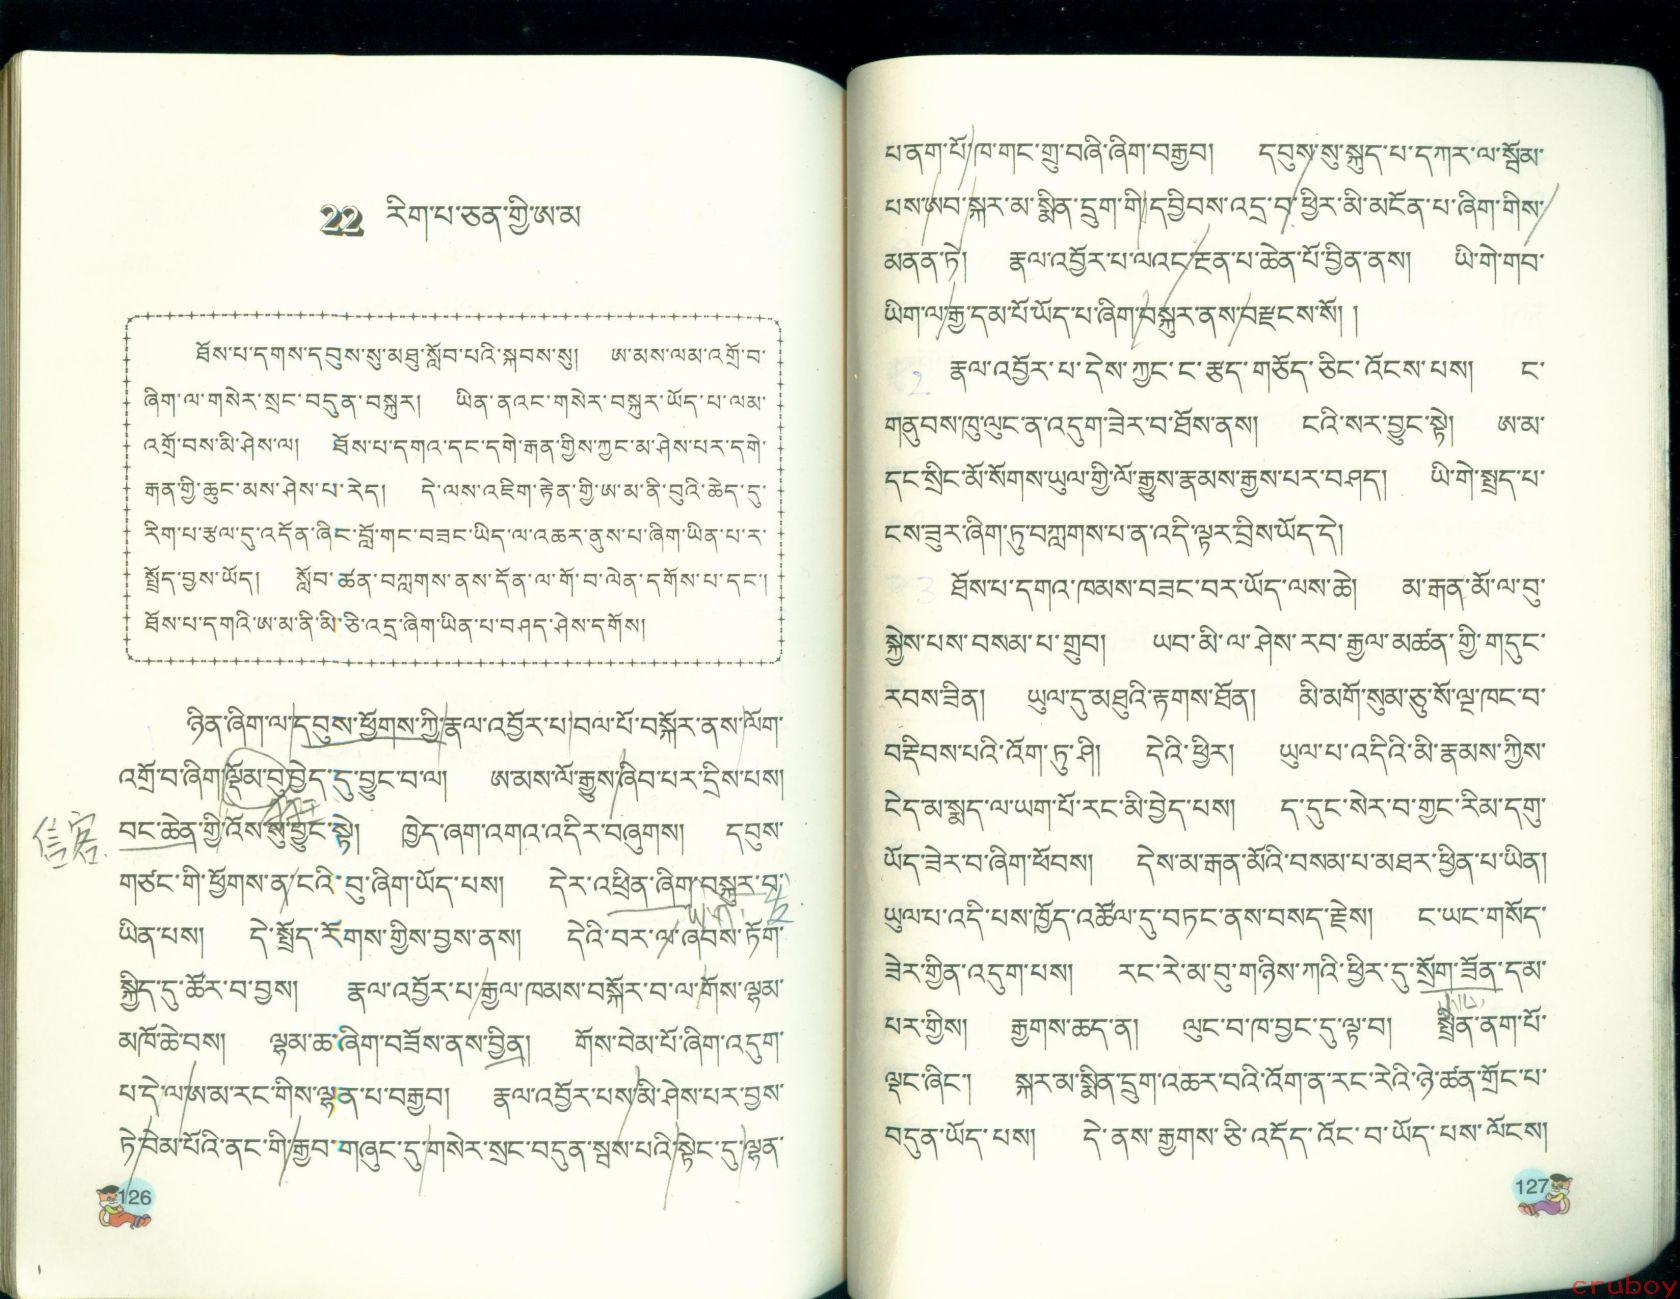 22 རིག་པ་ཅན་གྱི་ཨ་མ
ཐོས་པ་དགས་དབུས་སུ་མཐུ་སློབ་པའི་སྐབས་སུ། ཨ་མས་ལམ་འགྲོ་བ་
ཞིག་ལ་གསེར་སྲང་བདུན་བསྐུར། ཡིན་ནའང་གསེར་བསྐུར་ཡོད་པ་ལམ་
འགྲོ་བས་མི་ཤེས་ལ། ཐོས་པ་དགའ་དང་དགེ་རྒན་གྱིས་ཀྱང་མ་ཤེས་པར་དགེ་
རྒན་གྱི་ཆུང་མས་ཤེས་པ་རེད། དེ་ལས་འཇིག་རྟེན་གྱི་ཨ་མ་ནི་བུའི་ཆེད་དུ་
རིག་པ་རྩལ་དུ་འདོན་ཞིང་བློ་གང་བཟང་ཡིད་ལ་འཆར་ནུས་པ་ཞིག་ཡིན་པ་ར་
སྤྲོད་བྱས་ཡོད། སློབ་ཚན་བཀླགས་ནས་དོན་ལ་གོ་བ་ལེན་དགོས་པ་དང་།
ཐོས་པ་དགའི་ཨ་མ་ནི་མི་ཅི་འདྲ་ཞིག་ཡིན་པ་བཤད་ཤེས་དགོས།
ཉིན་ཞིག་ལ་དབུས་ཕྱོགས་ཀྱི་རྣལ་འབྱོར་པ་བལ་པོ་བསྐོར་ནས་ལོག་
འགྲོ་བ་ཞིག་ལྡོམ་བུ་བྱེད་དུ་བྱུང་བ་ལ། ཨ་མས་ལོ་རྒྱུས་ཞིབ་པར་དྲིས་པས།
བང་ཆེན་གྱི་འོས་སུ་བྱུང་སྟེ། ཁྱེད་ཞག་འགའ་འདིར་བཞུགས། དབུས་
信客
གཙང་གི་ཕྱོགས་ན་ངའི་བུ་ཞིག་ཡོད་པས། དེར་འཕྲིན་ཞིག་བསྐུར་བ་
ཡིན་པས། དེ་སྤྲོད་རོགས་གྱིས་བྱས་ནས། དེའི་བར་ལ་ཞབས་ཏོག་
སྐྱིད་དུ་ཚོར་བ་བྱས། རྣལ་འབྱོར་པ་རྒྱལ་ཁམས་བསྐོར་བ་ལ་གོས་ལྷམ་
མཁོ་ཆེ་བས། ལྷམ་ཆ་ཞིག་བཟོས་ནས་བྱིན། གོས་བེམ་པོ་ཞིག་འདུག་
པ་དེ་ལ་ཨ་མ་རང་གིས་ལྷན་པ་བརྒྱབ། རྣལ་འབྱོར་པས་མི་ཤེས་པར་བྱས་
ཏེ་བེམ་པོའི་ནང་གི་རྒྱབ་གཞུང་དུ་གསེར་སྲང་བདུན་སྦས་པའི་སྟེང་དུ་ལྷན་
126
པ་ནག་པོ་ཁ་གང་གྲུ་བཞི་ཞིག་བརྒྱབ། དབུས་སུ་སྐུད་པ་དཀར་ལ་སྦོམ་
པས་ཨབ་སྐར་མ་སྨིན་དྲུག་གི་དབྱིབས་འདྲ་བ་ཕྱིར་མི་མངོན་པ་ཞིག་གིས་
མནན་ཏེ། རྣལ་འབྱོར་པ་ལའང་རྔན་པ་ཆེན་པོ་བྱིན་ནས། ཡི་གེ་གབ་
ཡིག་ལ་རྒྱ་དམ་པོ་ཡོད་པ་ཞིག་བསྐུར་ནས་བརྫངས་སོ། །
2 རྣལ་འབྱོར་པ་དེས་ཀྱང་ང་རྩད་གཅོད་ཅིང་འོངས་པས། ང་
གནུབས་ཁུ་ལུང་ན་འདུག་ཟེར་བ་ཐོས་ནས། ངའི་སར་བྱུང་སྟེ། ཨ་མ་
དང་སྲིང་མོ་སོགས་ཡུལ་གྱི་ལོ་རྒྱུས་རྣམས་རྒྱས་པར་བཤད། ཡི་གེ་སྤྲད་པ་
ངས་ཟུར་ཞིག་ཏུ་བཀླགས་པ་ན་འདི་ལྟར་བྲིས་ཡོད་དེ།
3 ཐོས་པ་དགའ་ཁམས་བཟང་བར་ཡོད་ལས་ཆེ། མ་རྒན་མོ་ལ་བུ་
སྐྱེས་པས་བསམ་པ་གྲུབ། ཡབ་མི་ལ་ཤེས་རབ་རྒྱལ་མཚན་གྱི་གདུང་
རབས་ཟིན། ཡུལ་དུ་མཐུའི་རྟགས་ཐོན། མི་མགོ་སུམ་ཅུ་སོ་ལྔ་ཁང་བ་
བརྡིབས་པའི་འོག་ཏུ་ཤི། དེའི་ཕྱིར། ཡུལ་པ་འདིའི་མི་རྣམས་ཀྱིས་
ངེད་མ་སྨད་ལ་ཡག་པོ་རང་མི་བྱེད་པས། ད་དུང་སེར་བ་གྱང་རིམ་དགུ་
ཡོད་ཟེར་བ་ཞིག་ཕོབས། དེས་མ་རྒན་མོའི་བསམ་པ་མཐར་ཕྱིན་པ་ཡིན།
ཡུལ་པ་འདི་པས་ཁྱོད་འཚོལ་དུ་བཏང་ནས་བསད་རྗེས། ང་ཡང་གསོད་
ཟེར་གྱིན་འདུག་པས། རང་རེ་མ་བུ་གཉིས་ཀའི་ཕྱིར་དུ་སྲོག་ཟོན་དམ་
པར་གྱིས། རྒྱགས་ཆད་ན། ལུང་བ་ཁ་བྱང་དུ་ལྟ་བ། སྤྲིན་ནག་པོ་
ལྡང་ཞིང་། སྐར་མ་སྨིན་དྲུག་འཆར་བའི་འོག་ན་རང་རེའི་ཉེ་ཚན་གྲོང་པ་
བདུན་ཡོད་པས། དེ་ནས་རྒྱགས་ཅི་འདོད་འོང་བ་ཡོད་པས་ལོངས།
127
cruboy